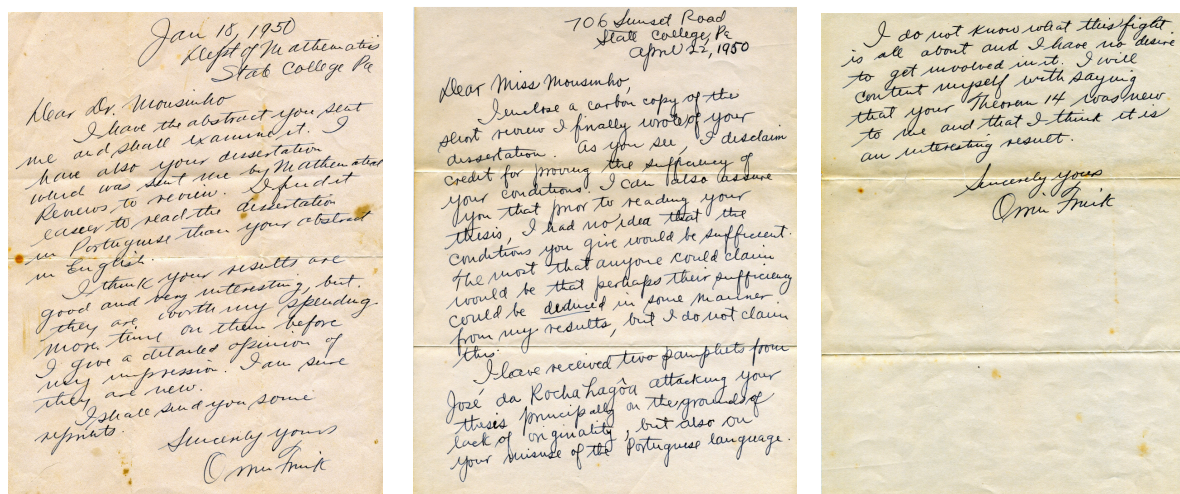 Jan 18, 1950
Dept of Mathematics
State College Pa
Dear Dr. Mousinho
I have the abstract you sent
me and shall examine it. I
have also your dissertation
which was sent me by Mathematical
Reviews to review. I find it
easier to read the dissertation
in Portuguese than your abstract
in English.
I think your results are
good and very interesting, but
they are worth my spending
more time on them before
I give a detailed opinion of
my impression. I am sure
they are new.
I shall send you some
reprints.
Sincerely yours
Orrin Frink
706 Sunset Road
State College, Pa
April 22, 1950
Dear Miss Mousinho,
I enclose a carbon copy of the
short review I finally wrote of your
dissertation. As you see, I disclaim
credit for proving the sufficiency of
your conditions. I can also assure
you that prior to reading your
thesis, I had no idea that the
conditions you give would be sufficient.
The most that anyone could claim
would be that perhaps their sufficiency
could be deduced in some manner
from my results, but I do not claim
this.
I have received two pamphlets from
José da Rocha Lagôa attacking your
thesis principally on the grounds of
lack of originality, but also on
your misuse of the Portuguese language.
I do not know what this fight
is all about and I have no desire
to get involved in it. I will
content myself with saying
that your Theorem 14 was new
to me and that I think it is
an interesting result.
Sincerely yours
Orrin Frink